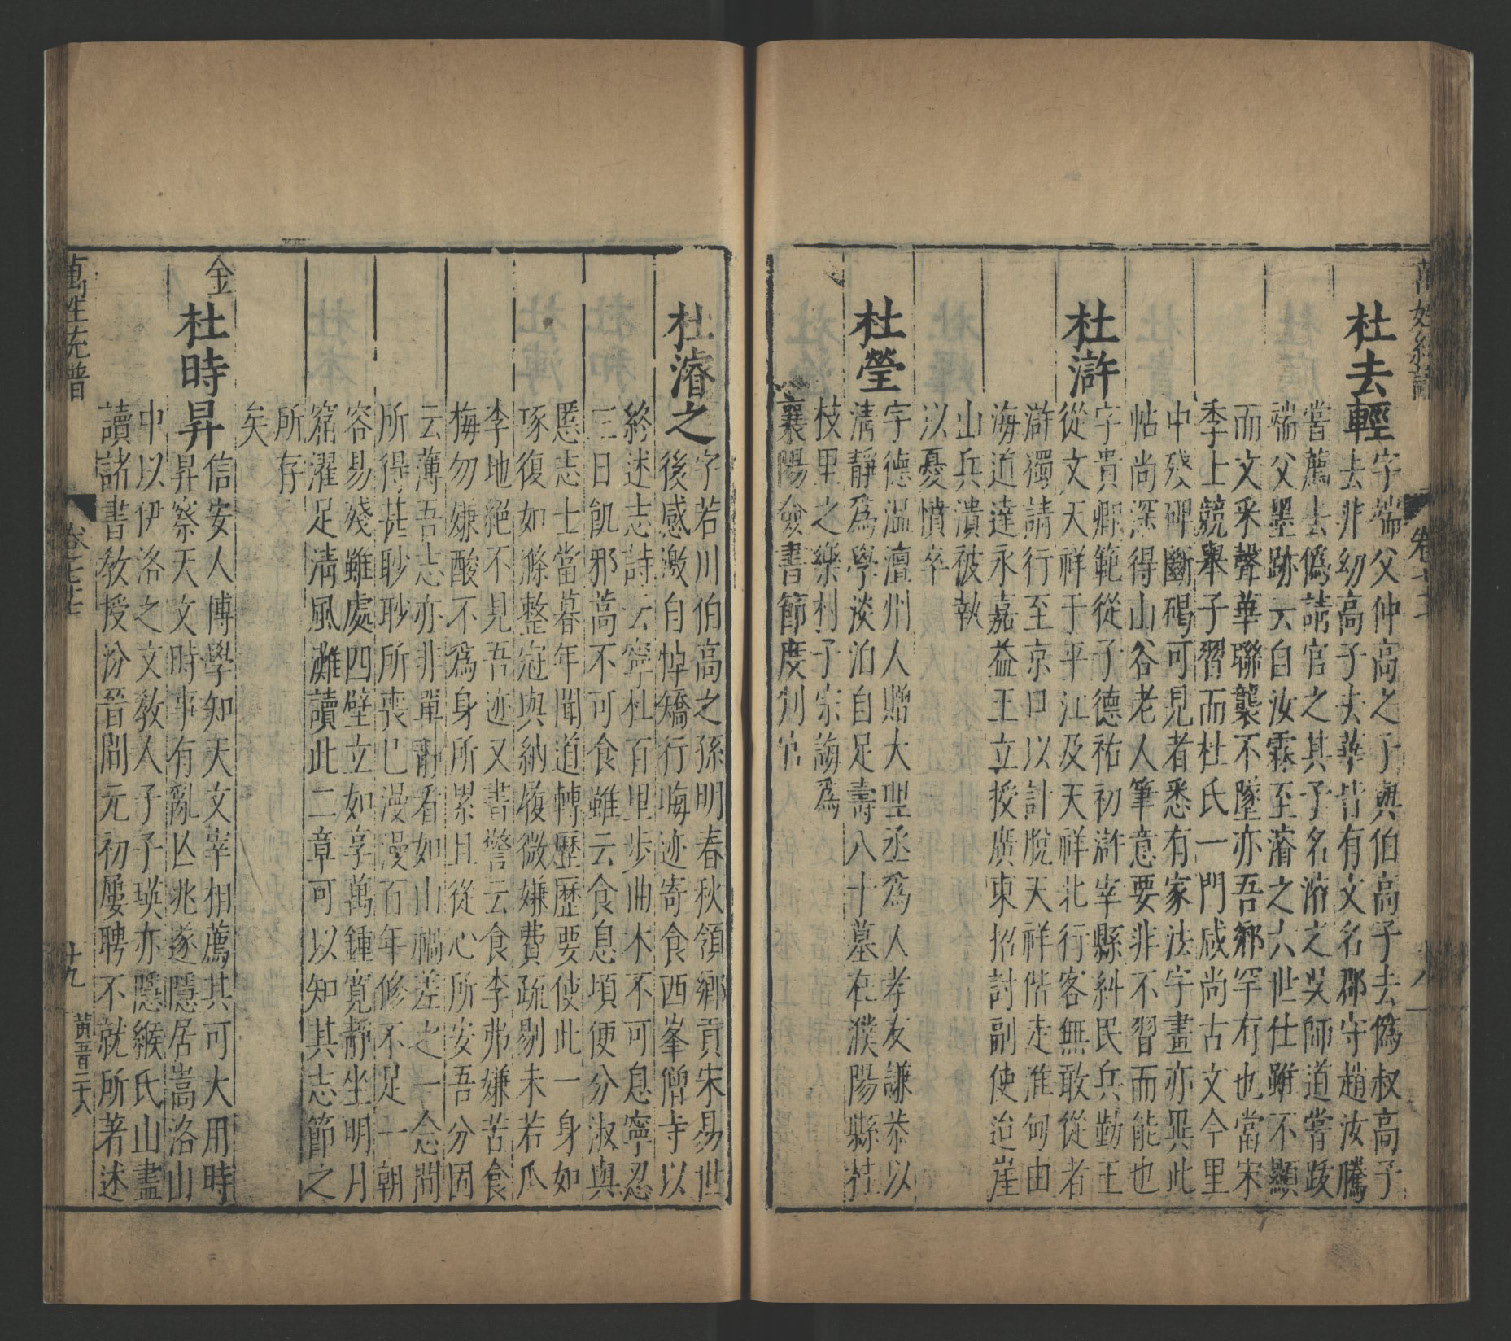 杜去輕字端父仲高之子與伯高子去僞叔高子
去非幼高子去華皆有文名郡守趙汝騰
嘗薦去僞請官之其子名濬之吳師道嘗跋
端父墨跡云自汝霖至濬之六世仕雖不顯
而文采聲華聯襲不墜亦吾鄉罕有也當宋
季上競舉子習而杜氏一門咸尚古文今里
中殘碑斷碣可見者悉有家法字畫亦異此
帖尚深得山谷老人筆意要非不習而能也
杜滸字貴卿範從子德祐初滸宰縣糾民兵勤王
從文天祥于平江及天祥北行客無敢從者
滸獨請行至京口以計脫天祥偕走淮甸由
海道達永嘉益王立授廣東招討副使迨崖
山兵潰被執
以憂憤卒
杜瑩字德溫澶州人贈大理丞爲人孝友謙恭以
清靜爲學淡泊自足壽八十墓在濮陽縣牡
枝里之樂村子宗誨爲
襄陽僉書節度判官
杜濬之字若川伯高之孫明春秋領鄉貢宋易世
後感激自悼矯行晦迹寄食西峯僧寺以
終述志詩云寧杜百里步曲木不可息寧忍
三日飢邪蒿不可食雖云食息頃便分淑與
慝志士當暮年聞道轉歷歷要使此一身如
琢復如滌整寇與納履微嫌費疏剔未若瓜
李地絕不見吾迹又書警云食李弗嫌苦食
梅勿嫌酸不爲身所累且從心所安吾分固
云薄吾志亦非單靜看如山禍差之一念間
所得甚眇眇所喪已漫漫百年修不足一朝
容易殘雖處四壁立如享萬鍾寬靜坐明月
窟濯足清風灘讀此二章可以知其志節之
所存
矣
金
杜時昇信安人博學知天文宰相薦其可大用時
昇察天文時事有亂亡兆遂隱居嵩洛山
中以伊洛之文教人子子瑛亦隱緱氏山盡
讀諸書教授汾晉間元初屢聘不就所著述
萬姓統譜
十九
黃晋二六